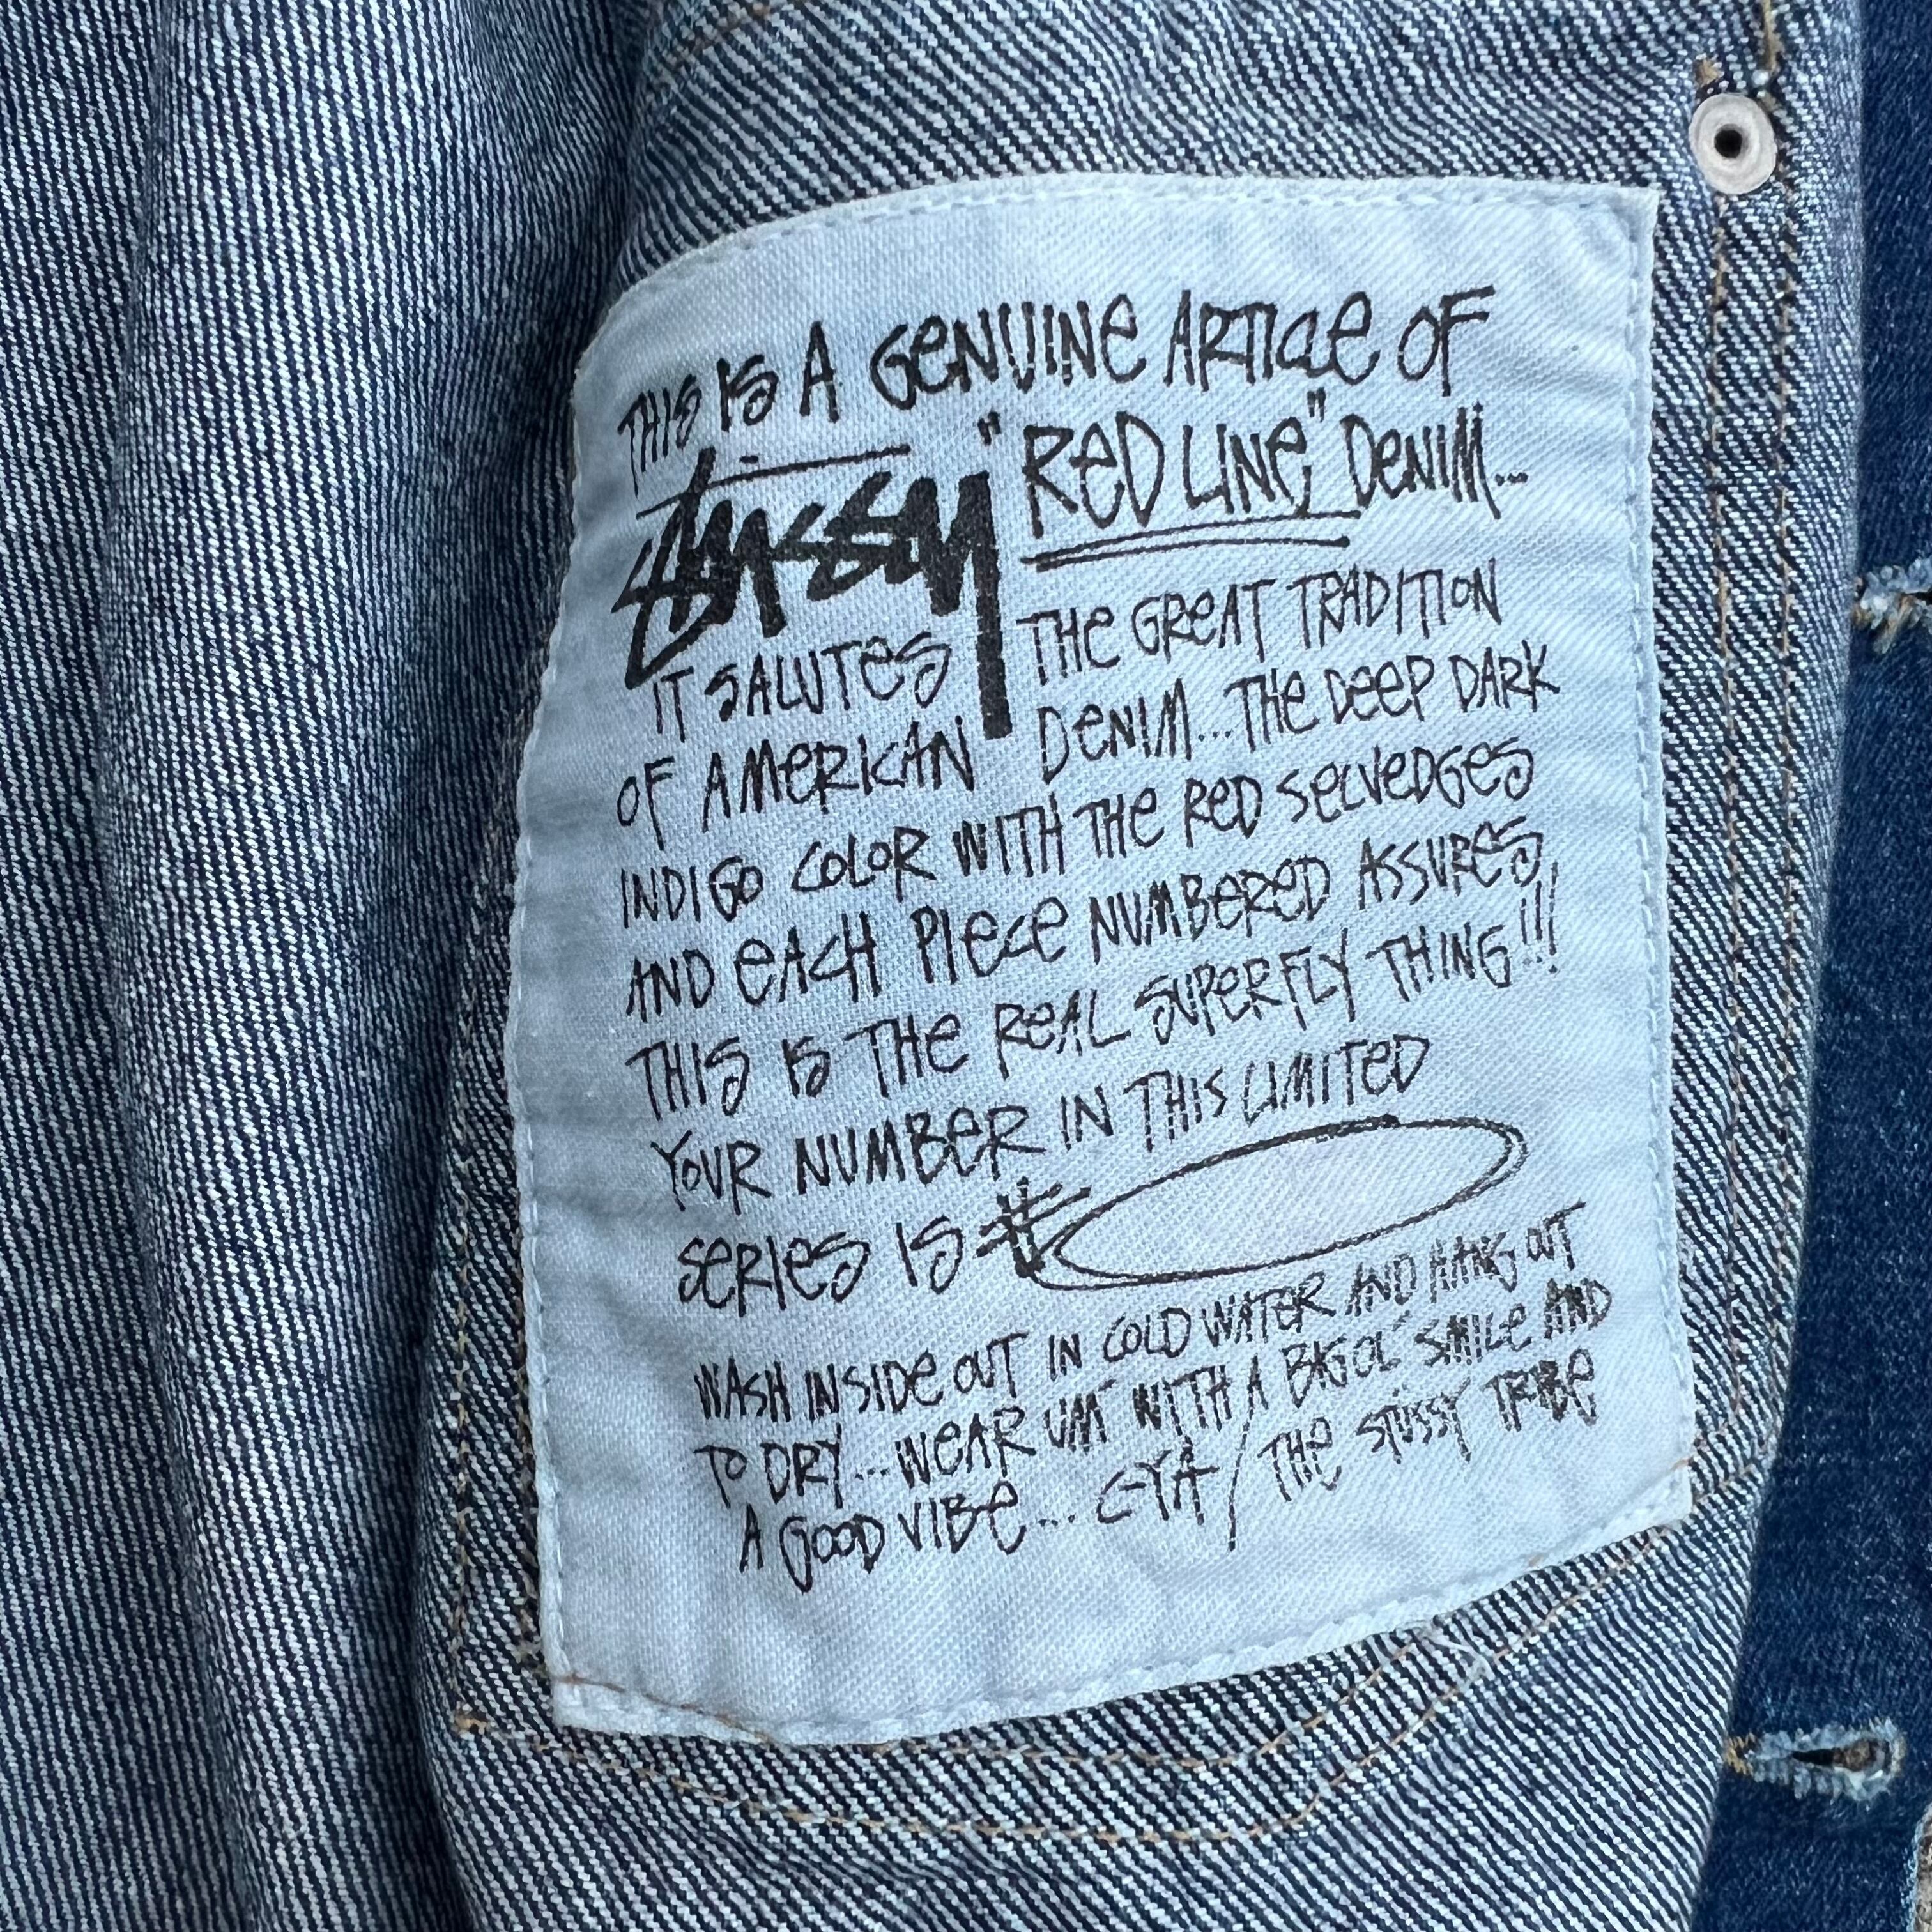 THIS IS A GENUINE ARTICLE OF
Stüssy "RED LINE" DENIM...
IT SALUTES THE GREAT TRADITION
OF AMERICAN DENIM...THE DEEP DARK
INDIGO COLOR WITH THE RED SELVEDGES
AND EACH PIECE NUMBERED ASSURES
THIS IS THE REAL SUPERFLY THING!!!
YOUR NUMBER IN THIS LIMITED
SERIES IS #
WASH INSIDE OUT IN COLD WATER AND HANG OUT
TO DRY...WEAR UM' WITH A BIG OL' SMILE AND
A GOOD VIBE... C-YA / THE STÜSSY TRIBE